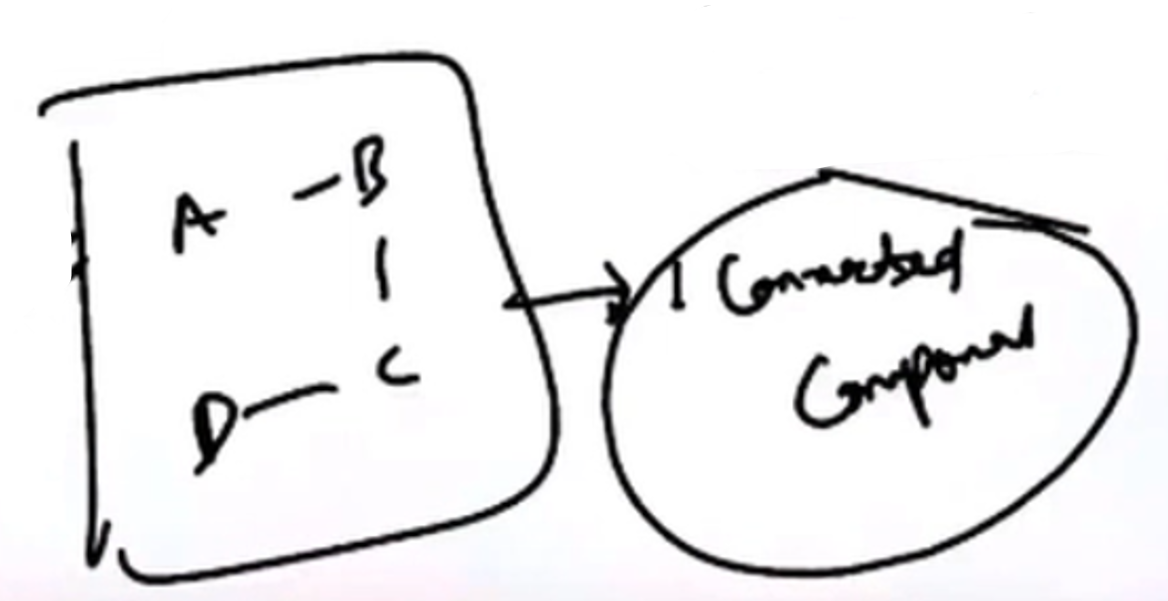 A - B
|
D - C
1 Connected
Component